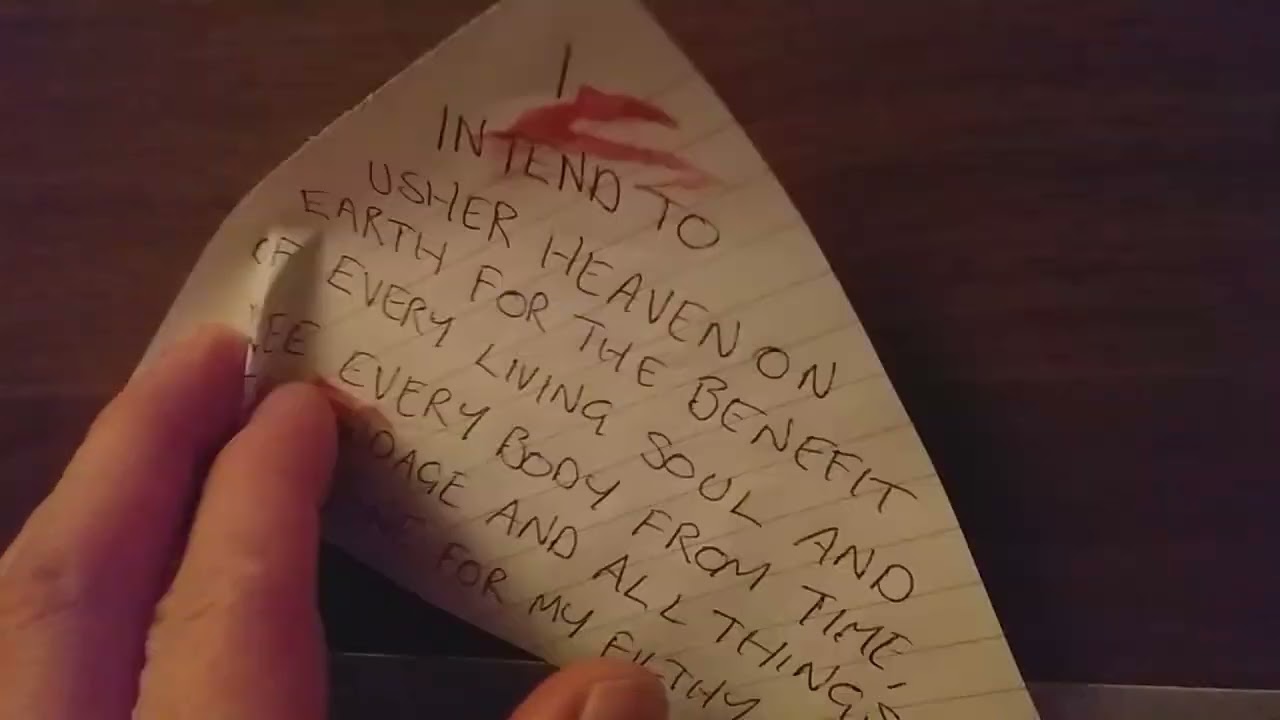 I
INTEND TO
USHER HEAVEN ON
EARTH FOR THE BENEFIT
OF EVERY LIVING SOUL AND
EVERY BODY FROM TIME,
AND ALL THINGS
FOR MY FILTHY